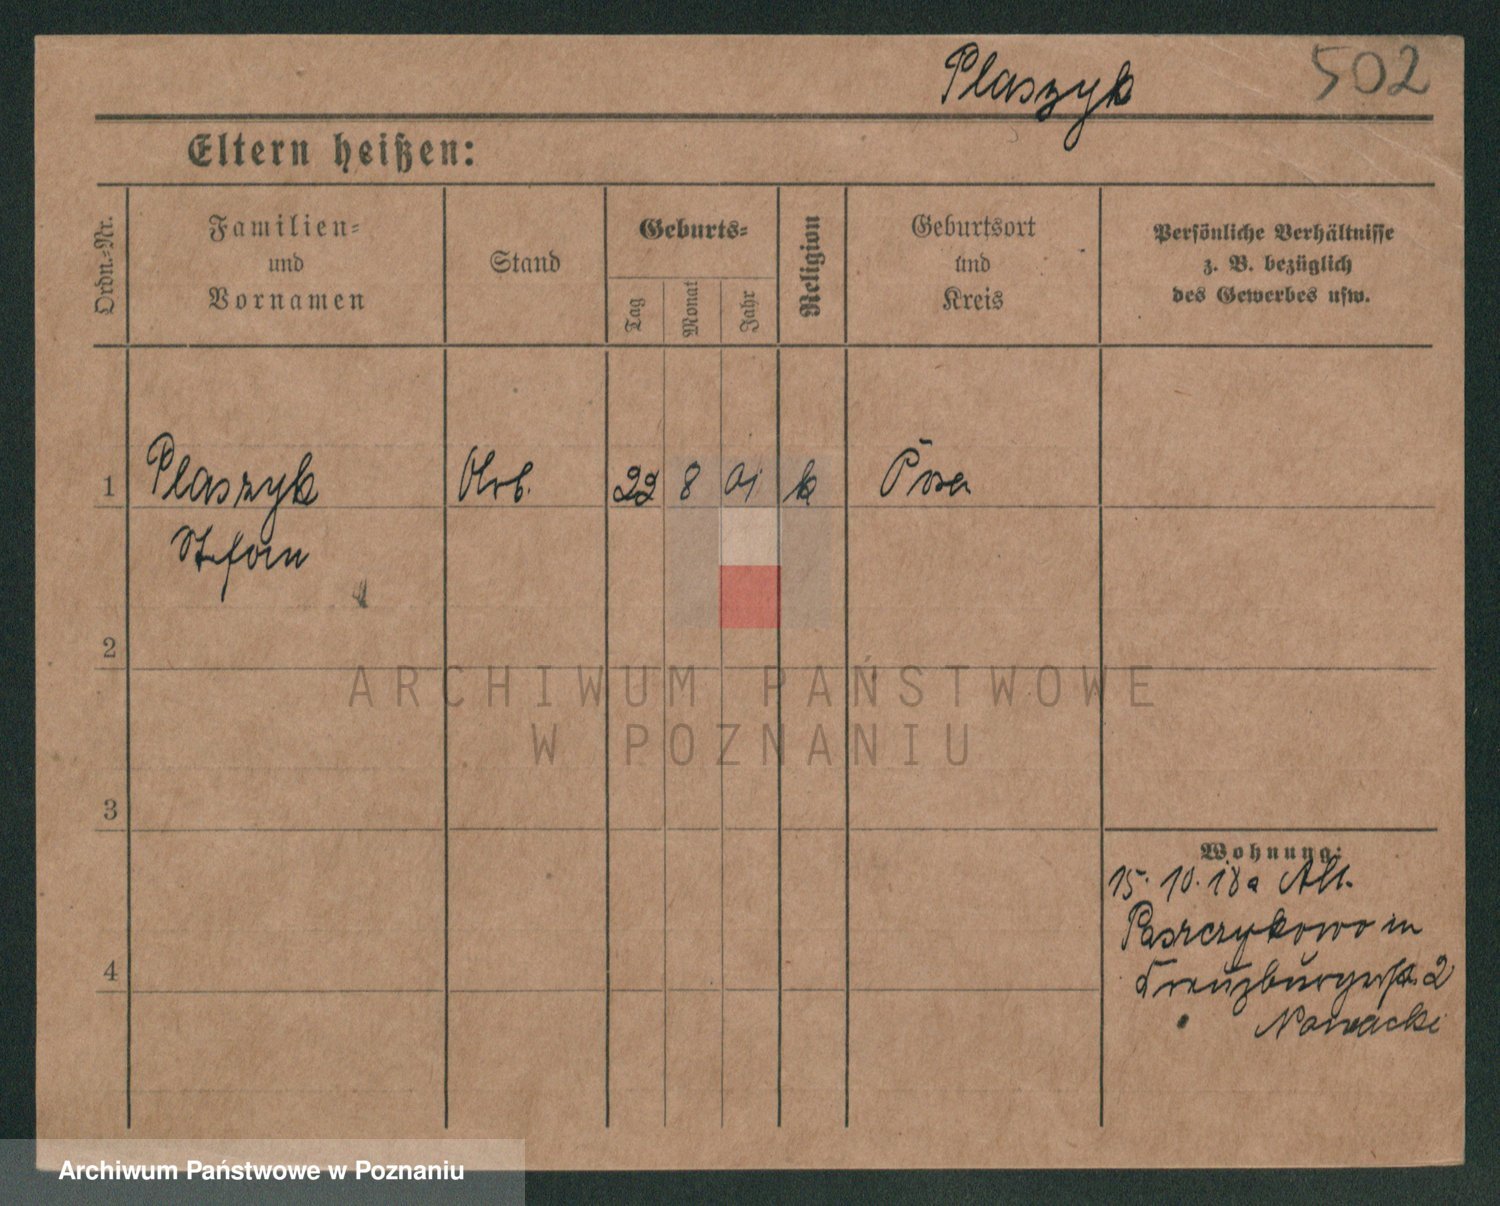 Plaszyk 502
Eltern heißen:
Ordn.-Nr.
Familien-
und
Vornamen
Stand
Geburts-
Tag
Monat
Jahr
Religion
Geburtsort
und
Kreis
Persönliche Verhältnisse
z. B. bezüglich
des Gewerbes usw.
1 Plaszyk Arb. 22 8 01 k Posen
Stefan
2
3
4
Wohnung:
15. 10. 18 a
in
Kreuzburgerstr. 2
Nowacki
ARCHIWUM PAŃSTWOWE
W POZNANIU
Archiwum Państwowe w Poznaniu